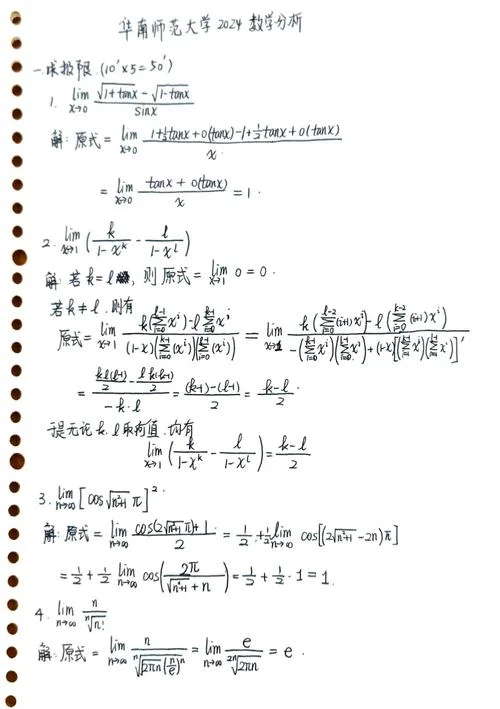 华南师范大学2024数学分析
一.求极限.(10'×5=50')
1. lim_{x→0} (√(1+tanx) - √(1-tanx)) / sinx
解: 原式 = lim_{x→0} (1+½tanx+o(tanx)-1+½tanx+o(tanx)) / x
= lim_{x→0} (tanx + o(tanx)) / x = 1.
2. lim_{x→1} (k/(1-x^k) - l/(1-x^l))
解: 若k=l, 则原式 = lim_{x→1} 0 = 0.
若k≠l, 则有
原式 = lim_{x→1} (k(∑_{i=0}^{l-1} x^i) - l∑_{i=0}^{k-1} x^i) / ((1-x)(∑_{i=0}^{k-1}(x^i))(∑_{i=0}^{l-1}(x^i))) = lim_{x→1} (k(∑_{i=0}^{l-2}(i+1)x^i) - l(∑_{i=0}^{k-2}(i+1)x^i)) / (-(∑_{i=0}^{k-1}x^i)(∑_{i=0}^{l-1}x^i) + (1-x)[(∑_{i=0}^{k-1}x^i)(∑_{i=0}^{l-1}x^i)]')
= (kl(l-1)/2 - lk(k-1)/2) / (-k·l) = ((k-1)-(l-1))/2 = (k-l)/2.
于是无论k.l取何值.均有
lim_{x→1} (k/(1-x^k) - l/(1-x^l)) = (k-l)/2
3. lim_{n→∞} [cos√(n²+1) π]².
解: 原式 = lim_{n→∞} (cos(2√(n²+1) π)+1)/2 = ½ + ½ lim_{n→∞} cos[(2√(n²+1) - 2n)π]
= ½ + ½ lim_{n→∞} cos(2π/(√(n²+1) + n)) = ½ + ½·1 = 1.
4. lim_{n→∞} n / ⁿ√(n!)
解: 原式 = lim_{n→∞} n / ⁿ√(√(2πn)(n/e)^n) = lim_{n→∞} e / ²ⁿ√(2πn) = e.